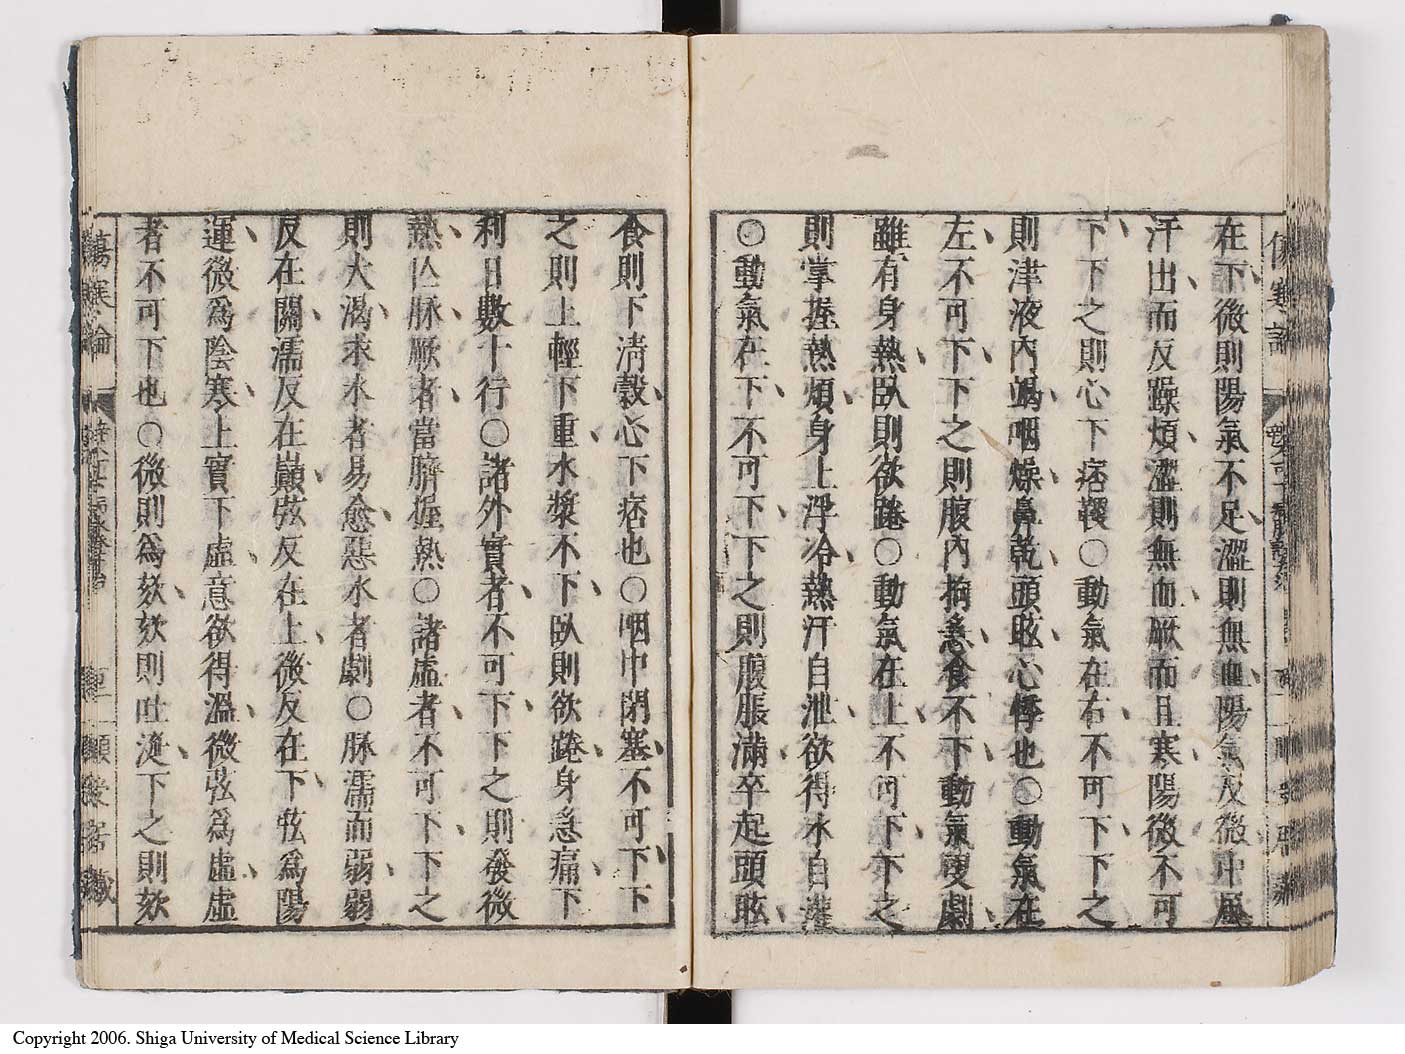 在下微則陽氣不足澀則無血陽氣反微中風
汗出而反躁煩澀則無血厥而且寒陽微不可
下下之則心下痞鞕〇動氣在右不可下下之
則津液內竭咽燥鼻乾頭眩心悸也〇動氣在
左不可下下之則腹內拘急食不下動氣更劇
雖有身熱臥則欲踡〇動氣在上不可下下之
則掌握熱煩身上浮冷熱汗自泄欲得水自灌
〇動氣在下不可下下之則腹脹滿卒起頭眩
食則下清穀心下痞也〇咽中閉塞不可下下
之則上輕下重水漿不下臥則欲踡身急痛下
利日數十行〇諸外實者不可下下之則發微
熱亾脉厥者當臍握熱〇諸虛者不可下下之
則大渴求水者易愈惡水者劇〇脉濡而弱弱
反在關濡反在巔弦反在上微反在下弦爲陽
運微爲陰寒上實下虛意欲得溫微弦爲虛虛
者不可下也〇微則爲欬欬則吐涎下之則欬
傷寒論
Copyright 2006. Shiga University of Medical Science Library